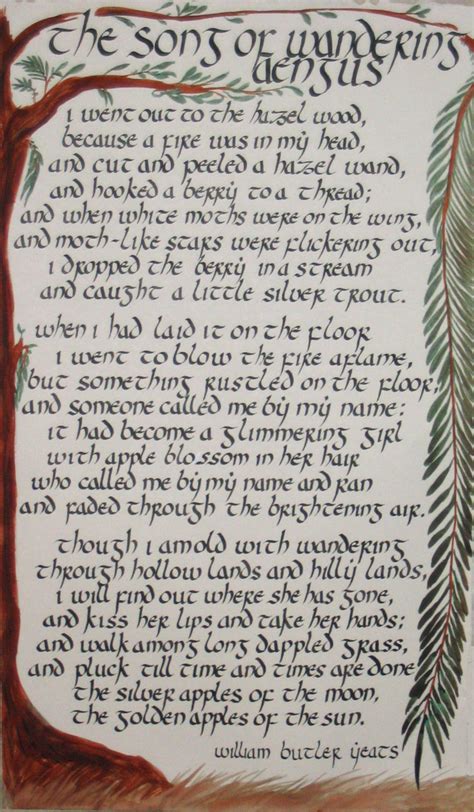 the song of wandering
aengus
i went out to the hazel wood,
because a fire was in my head,
and cut and peeled a hazel wand,
and hooked a berry to a thread;
and when white moths were on the wing,
and moth-like stars were flickering out,
i dropped the berry in a stream
and caught a little silver trout.
when i had laid it on the floor
i went to blow the fire aflame,
but something rustled on the floor,
and someone called me by my name:
it had become a glimmering girl
with apple blossom in her hair
who called me by my name and ran
and faded through the brightening air.
though i am old with wandering
through hollow lands and hilly lands,
i will find out where she has gone,
and kiss her lips and take her hands;
and walk among long dappled grass,
and pluck till time and times are done
the silver apples of the moon,
the golden apples of the sun.
william butler yeats